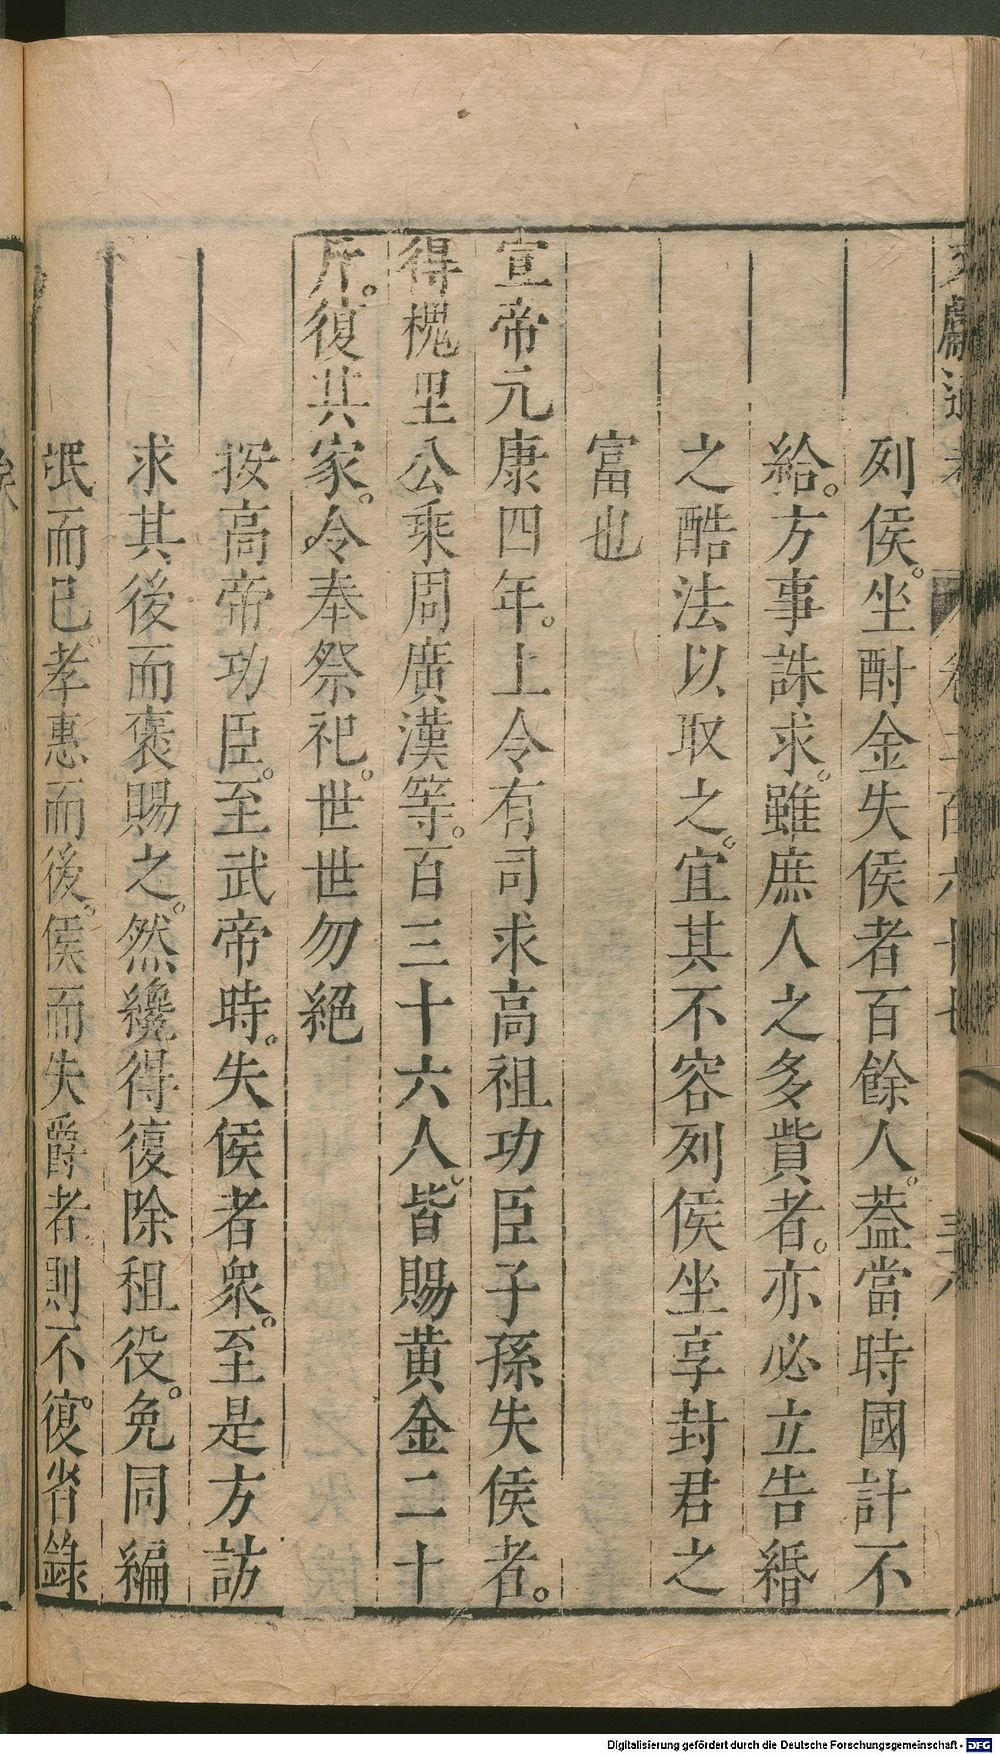 文獻通考 卷二百六十七 三六
列侯。坐酎金失侯者百餘人。葢當時國計不
給。方事誅求。雖庶人之多貲者。亦必立告緡
之酷法以取之。宜其不容列侯坐享封君之
富也
宣帝元康四年。上令有司求高祖功臣子孫失侯者。
得槐里公乘周廣漢等。百三十六人。皆賜黃金二十
斤。復其家。令奉祭祀。世世勿絕
按高帝功臣。至武帝時。失侯者衆。至是方訪
求其後而褒賜之。然纔得復除租役。免同編
氓而已。孝惠而後。侯而失爵者則不。復省錄
Digitalisierung gefördert durch die Deutsche Forschungsgemeinschaft - DFG